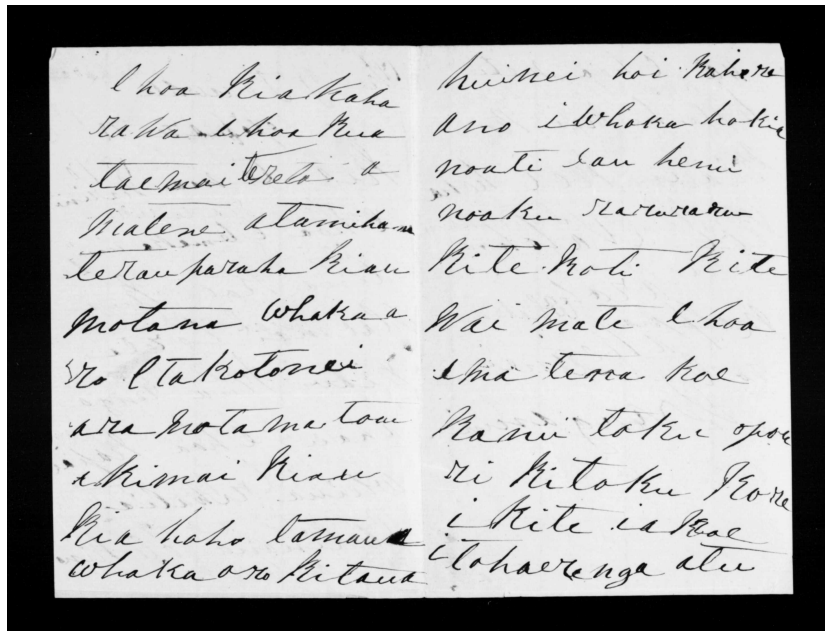 E hoa Kia Kaha
rawa E hoa Kua
tae mai te reta a
Matene a tamihana
te rauparaha Kiau
motana whakaa
ro E takoto nei
ara mo tamatou
e ki mai Kiau
Kia hoho tamaua
whaka aro Ki tana
huinei hoi Kahore
ano i whaka hokia
noati
noaku raruraru
Ki te Koti Ki te
Wai mate E hoa
ema tena koe
Ka nui toku opou
ri Ki toku Kore
i Kite ia Koe
i to haerenga atu